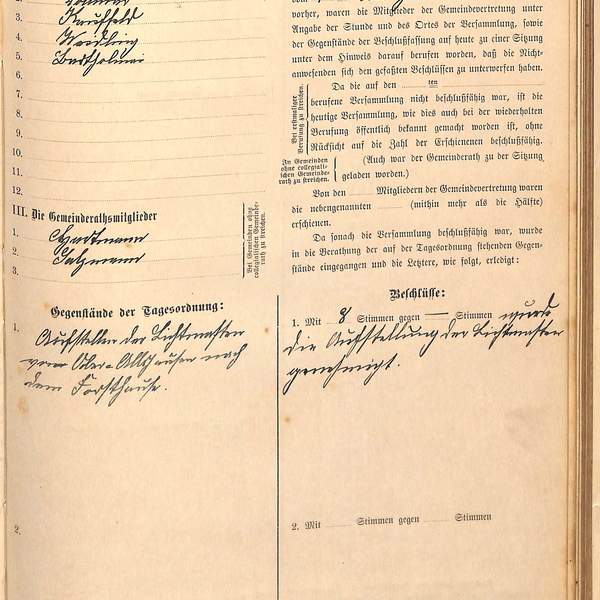 3. Kauffeld
4. Weidling
5. Bartholmai
6.
7.
8.
9.
10.
11.
12.
III. Die Gemeinderathsmitglieder
1. Hartmann
2. Salzmann
3.
Bei Gemeinden ohne
collegialischen Gemeinde-
rath zu streichen.
vorher, waren die Mitglieder der Gemeindevertretung unter
Angabe der Stunde und des Ortes der Versammlung, sowie
der Gegenstände der Beschlußfassung auf heute zu einer Sitzung
unter dem Hinweis darauf berufen worden, daß die Nicht-
anwesenden sich den gefaßten Beschlüssen zu unterwerfen haben.
Bei erstmaliger
Berufung zu streichen.
Da die auf den ten
berufene Versammlung nicht beschlußfähig war, ist die
heutige Versammlung, wie dies auch bei der wiederholten
Berufung öffentlich bekannt gemacht worden ist, ohne
Rücksicht auf die Zahl der Erschienenen beschlußfähig.
In Gemeinden
ohne collegiali-
schen Gemeinde-
rath zu streichen.
(Auch war der Gemeinderath zu der Sitzung
geladen worden.)
Von den Mitgliedern der Gemeindevertretung waren
die nebengenannten (mithin mehr als die Hälfte)
erschienen.
Da sonach die Versammlung beschlußfähig war, wurde
in die Berathung der auf der Tagesordnung stehenden Gegen-
stände eingegangen und die Letztere, wie folgt, erledigt:
Gegenstände der Tagesordnung:
1. Aufstellen der Lichtmasten
von Ober-Allshausen nach
dem Forsthause.
2.
Beschlüsse:
1. Mit 8 Stimmen gegen — Stimmen wurde
die Aufstellung der Lichtmasten
genehmigt.
2. Mit Stimmen gegen Stimmen